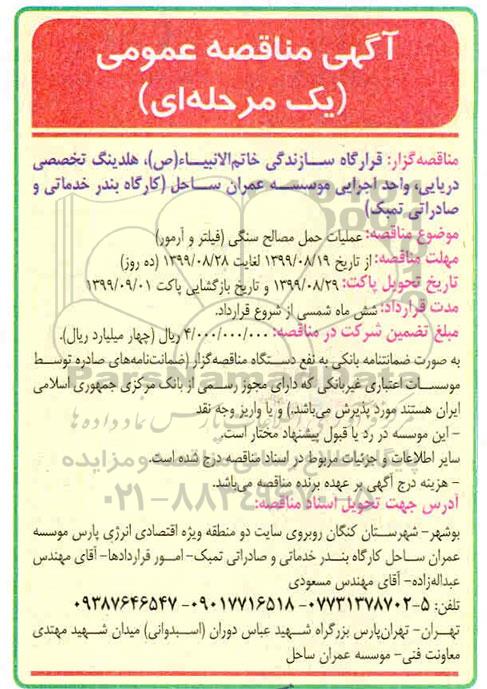 آگهی مناقصه عمومی
(یک مرحله‌ای)
مناقصه‌گزار: قرارگاه سازندگی خاتم‌الانبیاء(ص)، هلدینگ تخصصی
دریایی، واحد اجرایی موسسه عمران ساحل (کارگاه بندر خدماتی و
صادراتی تمبک)
موضوع مناقصه: عملیات حمل مصالح سنگی (فیلتر و آرمور)
مهلت مناقصه: از تاریخ ۱۳۹۹/۰۸/۱۹ لغایت ۱۳۹۹/۰۸/۲۸ (ده روز)
تاریخ تحویل پاکت: ۱۳۹۹/۰۸/۲۹ و تاریخ بازگشایی پاکت ۱۳۹۹/۰۹/۰۱
مدت قرارداد: شش ماه شمسی از شروع قرارداد.
مبلغ تضمین شرکت در مناقصه: ۴/۰۰۰/۰۰۰/۰۰۰ ریال (چهار میلیارد ریال).
به صورت ضمانتنامه بانکی به نفع دستگاه مناقصه‌گزار (ضمانت‌نامه‌های صادره توسط
موسسات اعتباری غیربانکی که دارای مجوز رسمی از بانک مرکزی جمهوری اسلامی
ایران هستند مورد پذیرش می‌باشد.) و یا واریز وجه نقد
- این موسسه در رد یا قبول پیشنهاد مختار است.
سایر اطلاعات و جزئیات مربوط در اسناد مناقصه درج شده است.
- هزینه درج آگهی بر عهده برنده مناقصه می‌باشد.
۰۲۱-۸۸۳۴۹۶۷۰-۵
آدرس جهت تحویل اسناد مناقصه:
بوشهر- شهرستان کنگان روبروی سایت دو منطقه ویژه اقتصادی انرژی پارس موسسه
عمران ساحل کارگاه بندر خدماتی و صادراتی تمبک- امور قراردادها- آقای مهندس
عبداله‌زاده- آقای مهندس مسعودی
تلفن: ۵-۰۷۷۳۱۳۷۸۷۰۲- ۰۹۰۱۷۷۱۶۵۱۸- ۰۹۳۸۷۶۴۶۵۴۷
تهران- تهران‌پارس بزرگراه شهید عباس دوران (اسبدوانی) میدان شهید مهتدی
معاونت فنی- موسسه عمران ساحل